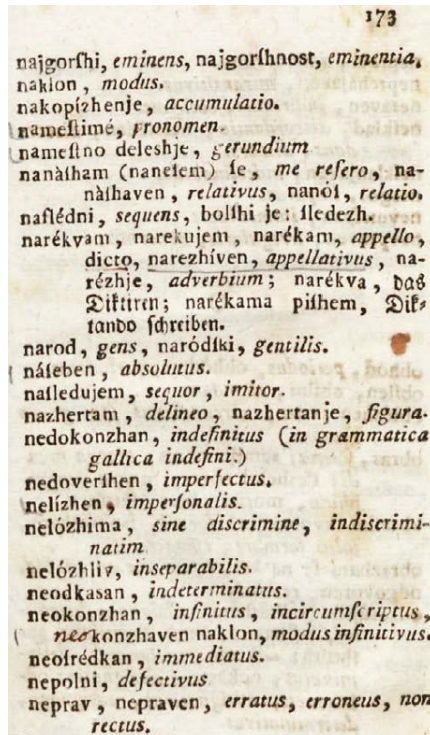 173
najgorſhi, eminens, najgorſhnost, eminentia.
naklon, modus.
nakopízhenje, accumulatio.
nameſtimé, pronomen.
nameſtno deleshje, gerundium
nanàſham (naneſem) ſe, me refero, na-
nàſhaven, relativus, nanóſ, relatio.
naſlédni, sequens, bolſhi je: ſledezh.
narékvam, narekujem, narékam, appello,
dicto, narezhíven, appellativus, na-
rézhje, adverbium; narékva, das
Diktiren; narékama piſhem, Dik-
tando ſchreiben.
narod, gens, naródſki, gentilis.
náſeben, absolutus.
naſledujem, sequor, imitor.
nazhertam, delineo, nazhertanje, figura.
nedokonzhan, indefinitus (in grammatica
gallica indefini.)
nedoverſhen, imperfectus.
nelízhen, imperſonalis.
nelózhima, sine discrimine, indiscrimi-
natim
nelózhliv, inseparabilis.
neodkasan, indeterminatus.
neokonzhan, infinitus, incircumſcriptus,
neokonzhaven naklon, modus infinitivus.
neoſrédkan, immediatus.
nepolni, defectivus
neprav, nepraven, erratus, erroneus, non
rectus.